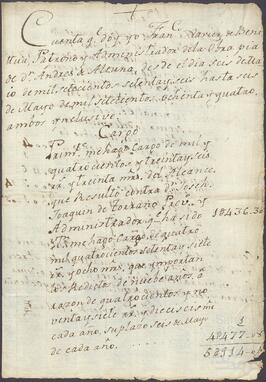 Cuenta q.e doy yo Fran.co Xavier de Bene
Patrono y Administrador dela Obra pia
de D.n Andres de Aleuna, desde el dia seis de Maio
de mil setecientos setenta y seis hasta seis
de Mayo de mil setecientos ochenta y quatro,
ambos ynclusive
Cargo
Prim.te me hago Cargo de mil y
quatrocientos y treinta y seis
rr. y treinta mrs. del Alcance
que Resultó contra D.n Joseph
Joaquin de Torrano Pro. y
Administrador q.e ha sido
1º436.30
Yt me hago Cargo de quatro
mil quatrocientos setenta y siete
rr. y ocho mrs. que importan
los Reditos de nueve años, a
razon de quatrocientos y no
venta y siete rr. y diez y seis mrs.
cada año, su plazo seis de Mayo
de cada año
4º477..8
5º914..